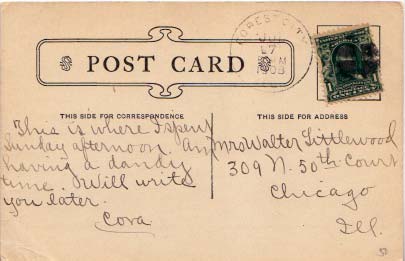 FOREST CITY
JUL
27
M
1908
POST CARD
1
1
THIS SIDE FOR CORRESPONDENCE
THIS SIDE FOR ADDRESS
This is where I spent
Sunday afternoon. Am
having a dandy
time. Will write
you later.
Cora
Mrs Walter Littlewood
309 N. 50th Court
Chicago
Ill.